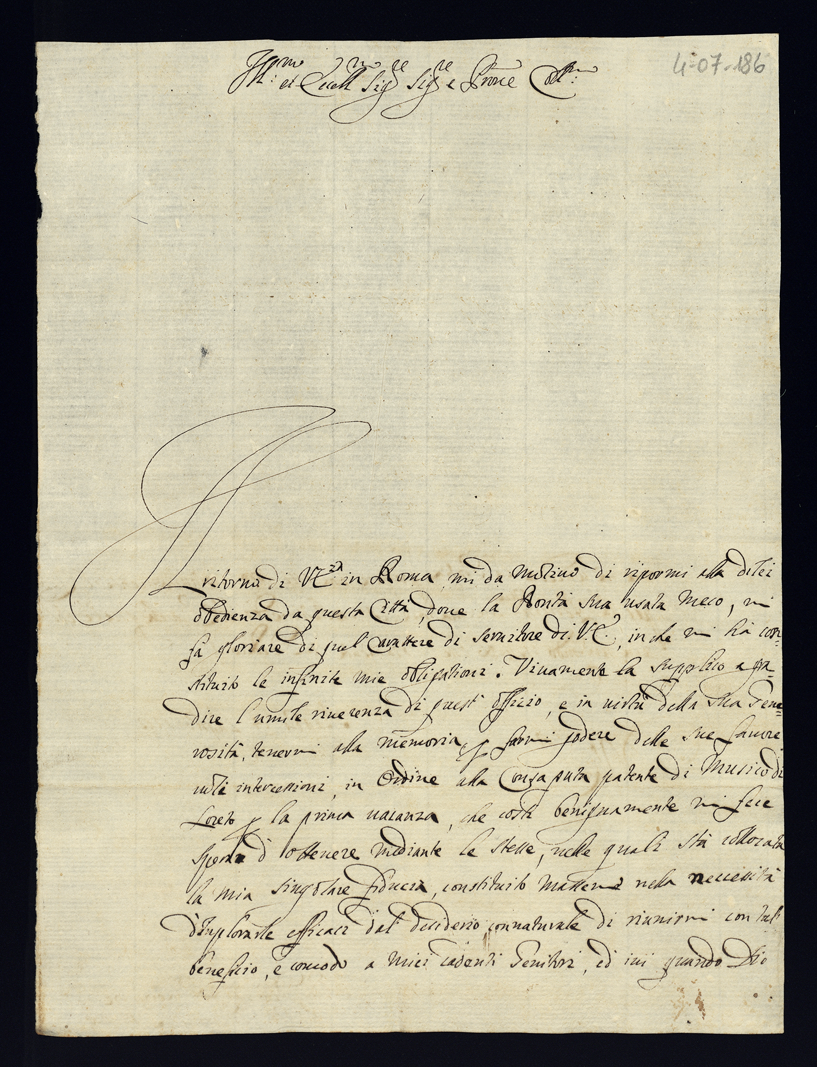 4-07-186
Ill:mo et Ecc:mo Sig:re Sig:re e Prone Col:mo
Il ritorno di V E.za in Roma, mi da motivo di ripormi alla di lei
obedienza da questa Città, dove la Bontà sua usata meco, mi
fà gloriare di quel Carattere di Servitore di V E., in che mi hà con=
stituito le infinite mie obligationi. Vivamente la supplico a gra=
dire l'umile riverenza di quest'offizio, e in virtù della sua Gene=
rosità, tenermi alla memoria, e farmi godere delle sue favore=
voli intercessioni, in ordine alla Consaputa patente di Musico di
Loreto p la prima vacanza, che costì benignamente mi fece
sperar d'ottenere mediante le stesse, nelle quali stà collocata
la mia singolare fiducia, constituito nella necessità
d'implorarle efficaci dal desiderio connaturale di riunirmi con tal
beneficio, e comodo a miei cadenti Genitori, ed ivi quando Dio